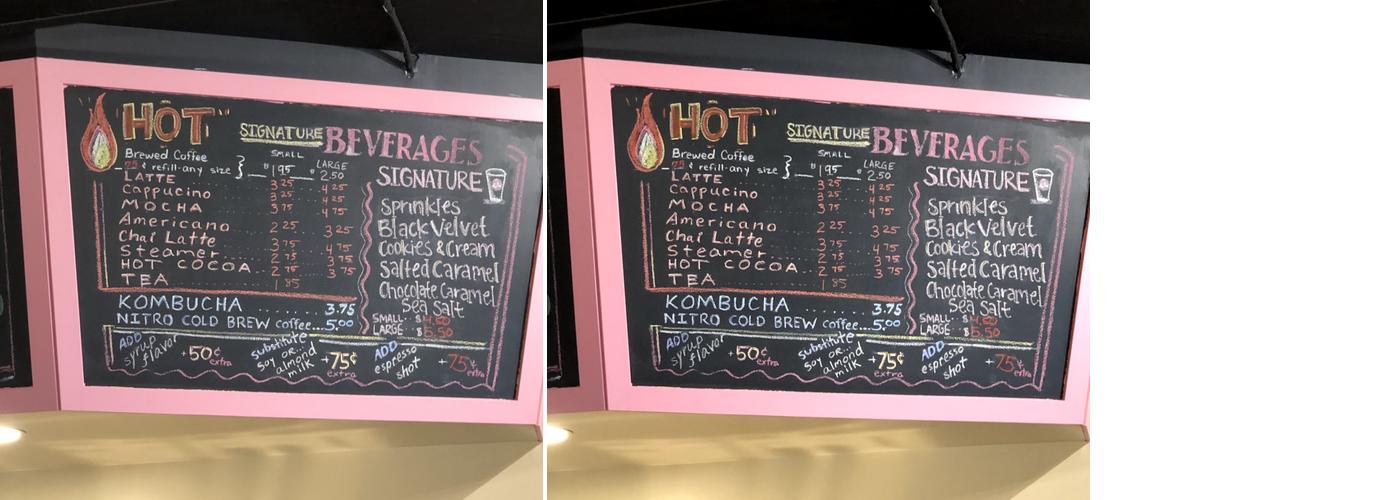 "HOT"
SIGNATURE BEVERAGES
SMALL LARGE
Brewed Coffee
75¢ refill-any size } $1.95 $2.50
LATTE 3 25 4 25
Cappucino 3 25 4 25
MOCHA 3 75 4 75
Americano 2 25 3 25
Chai Latte 3 75 4 75
Steamer 2 75 3 75
HOT COCOA 2 75 3 75
TEA 1 85
KOMBUCHA 3.75
NITRO COLD BREW coffee...5.00
SIGNATURE
Sprinkles
Black Velvet
Cookies & Cream
Salted Caramel
Chocolate Caramel
Sea Salt
SMALL
LARGE $5.50
ADD
syrup
flavor
+50¢
extra
substitute
soy or...
almond
milk
+75¢
extra
ADD
espresso
shot
+75¢
extra
"HOT"
SIGNATURE BEVERAGES
SMALL LARGE
Brewed Coffee
75¢ refill-any size } $1.95 $2.50
LATTE 3 25 4 25
Cappucino 3 25 4 25
MOCHA 3 75 4 75
Americano 2 25 3 25
Chai Latte 3 75 4 75
Steamer 2 75 3 75
HOT COCOA 2 75 3 75
TEA 1 85
KOMBUCHA 3.75
NITRO COLD BREW coffee...5.00
SIGNATURE
Sprinkles
Black Velvet
Cookies & Cream
Salted Caramel
Chocolate Caramel
Sea Salt
SMALL
LARGE $5.50
ADD
syrup
flavor
+50¢
extra
substitute
soy or...
almond
milk
+75¢
extra
ADD
espresso
shot
+75¢
extra